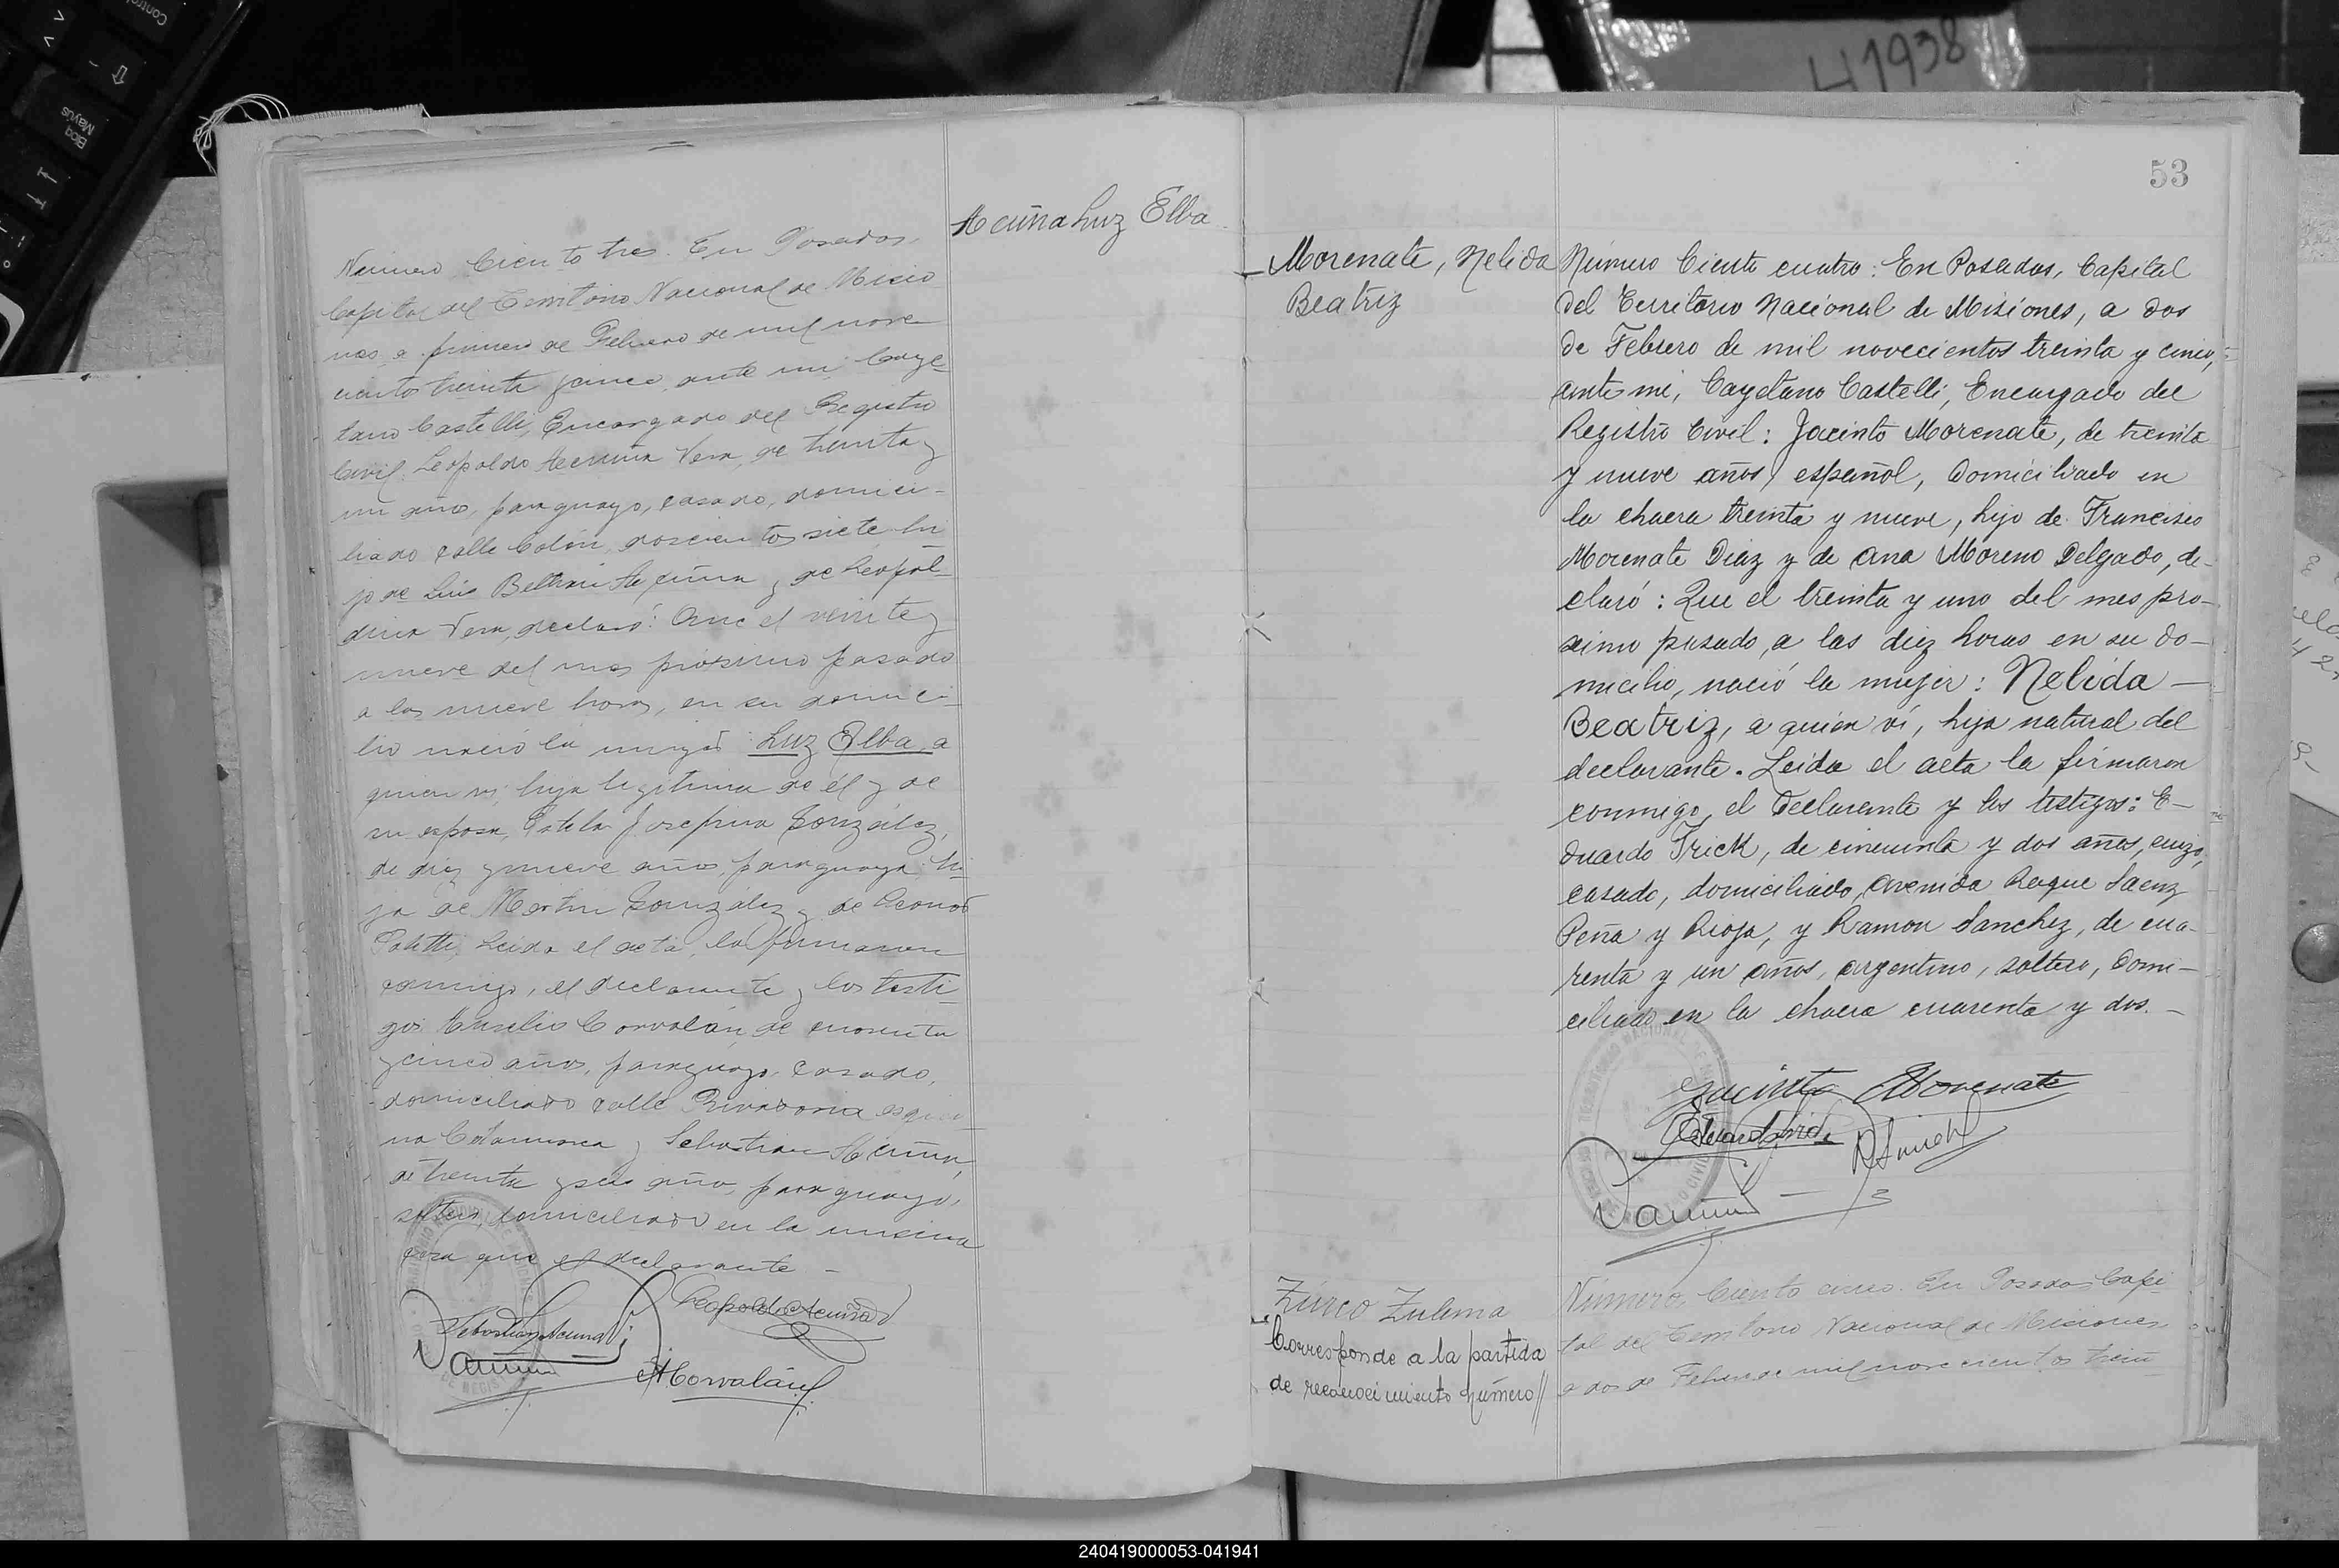 Acuña Luz Elba
Número Ciento tres. En Posadas,
Capital del Territorio Nacional de Misio
nes a primero de Febrero de mil nove
cientos treinta y cinco, ante mi Caye
tano Castelli, Encargado del Registro
Civil: Leopoldo Acuña Vera, de treinta y
un años, paraguayo, casado, domici-
liado calle Colón, doscientos siete hi
jo de Luis Beltran Acuña y de Leopol-
dina Vera, declaró: Que el veinte y
nueve del mes próximo pasado
a las nueve horas, en su domici-
lio nació la mujer: Luz Elba, a
quien vi, hija legitima de él y de
su esposa, Estela Josefina González,
de diez y nueve años, paraguaya, hi-
ja de Martin González y de
Leida el acta, la firmaron
conmigo, el declarante y los testi-
gos: Corvalán, de cuarenta
y cinco años, paraguayo, casado,
domiciliado calle Rivadavia esqui-
na Catamarca y Sebastian Acuña,
de treinta y seis años, paraguayo,
soltero, domiciliado en la misma
casa que el declarante -
Leopoldo Acuña
Sebastian Acuña
Corvalán
53
Morenate, Nelida
Beatriz
Número Ciento cuatro: En Posadas, Capital
del Territorio Nacional de Misiones, a dos
de Febrero de mil novecientos treinta y cinco,
ante mi, Cayetano Castelli, Encargado del
Registro Civil: Jacinto Morenate, de treinta
y nueve años, español, domiciliado en
la chacra treinta y nueve, hijo de Francisco
Morenate Diaz y de Ana Moreno Delgado, de-
claró: Que el treinta y uno del mes pro-
ximo pasado, a las diez horas en su do-
micilio, nació la mujer: Nelida -
Beatriz, a quien ví, hija natural del
declarante. Leida el acta la firmaron
conmigo, el declarante y los testigos: E-
duardo Frick, de cincuenta y dos años, suizo,
casado, domiciliado, Avenida Roque Saenz
Peña y Rioja, y Ramon Sanchez, de cua-
renta y un años, argentino, soltero, domi-
ciliado en la chacra cuarenta y dos. -
Jacinto Morenate
Zulema
Corresponde a la partida
de reconocimiento número//
Número, Ciento cinco. En Posadas Capi
tal del Territorio Nacional de Misiones
a dos de Febrero de mil novecientos trein
41938
240419000053-041941